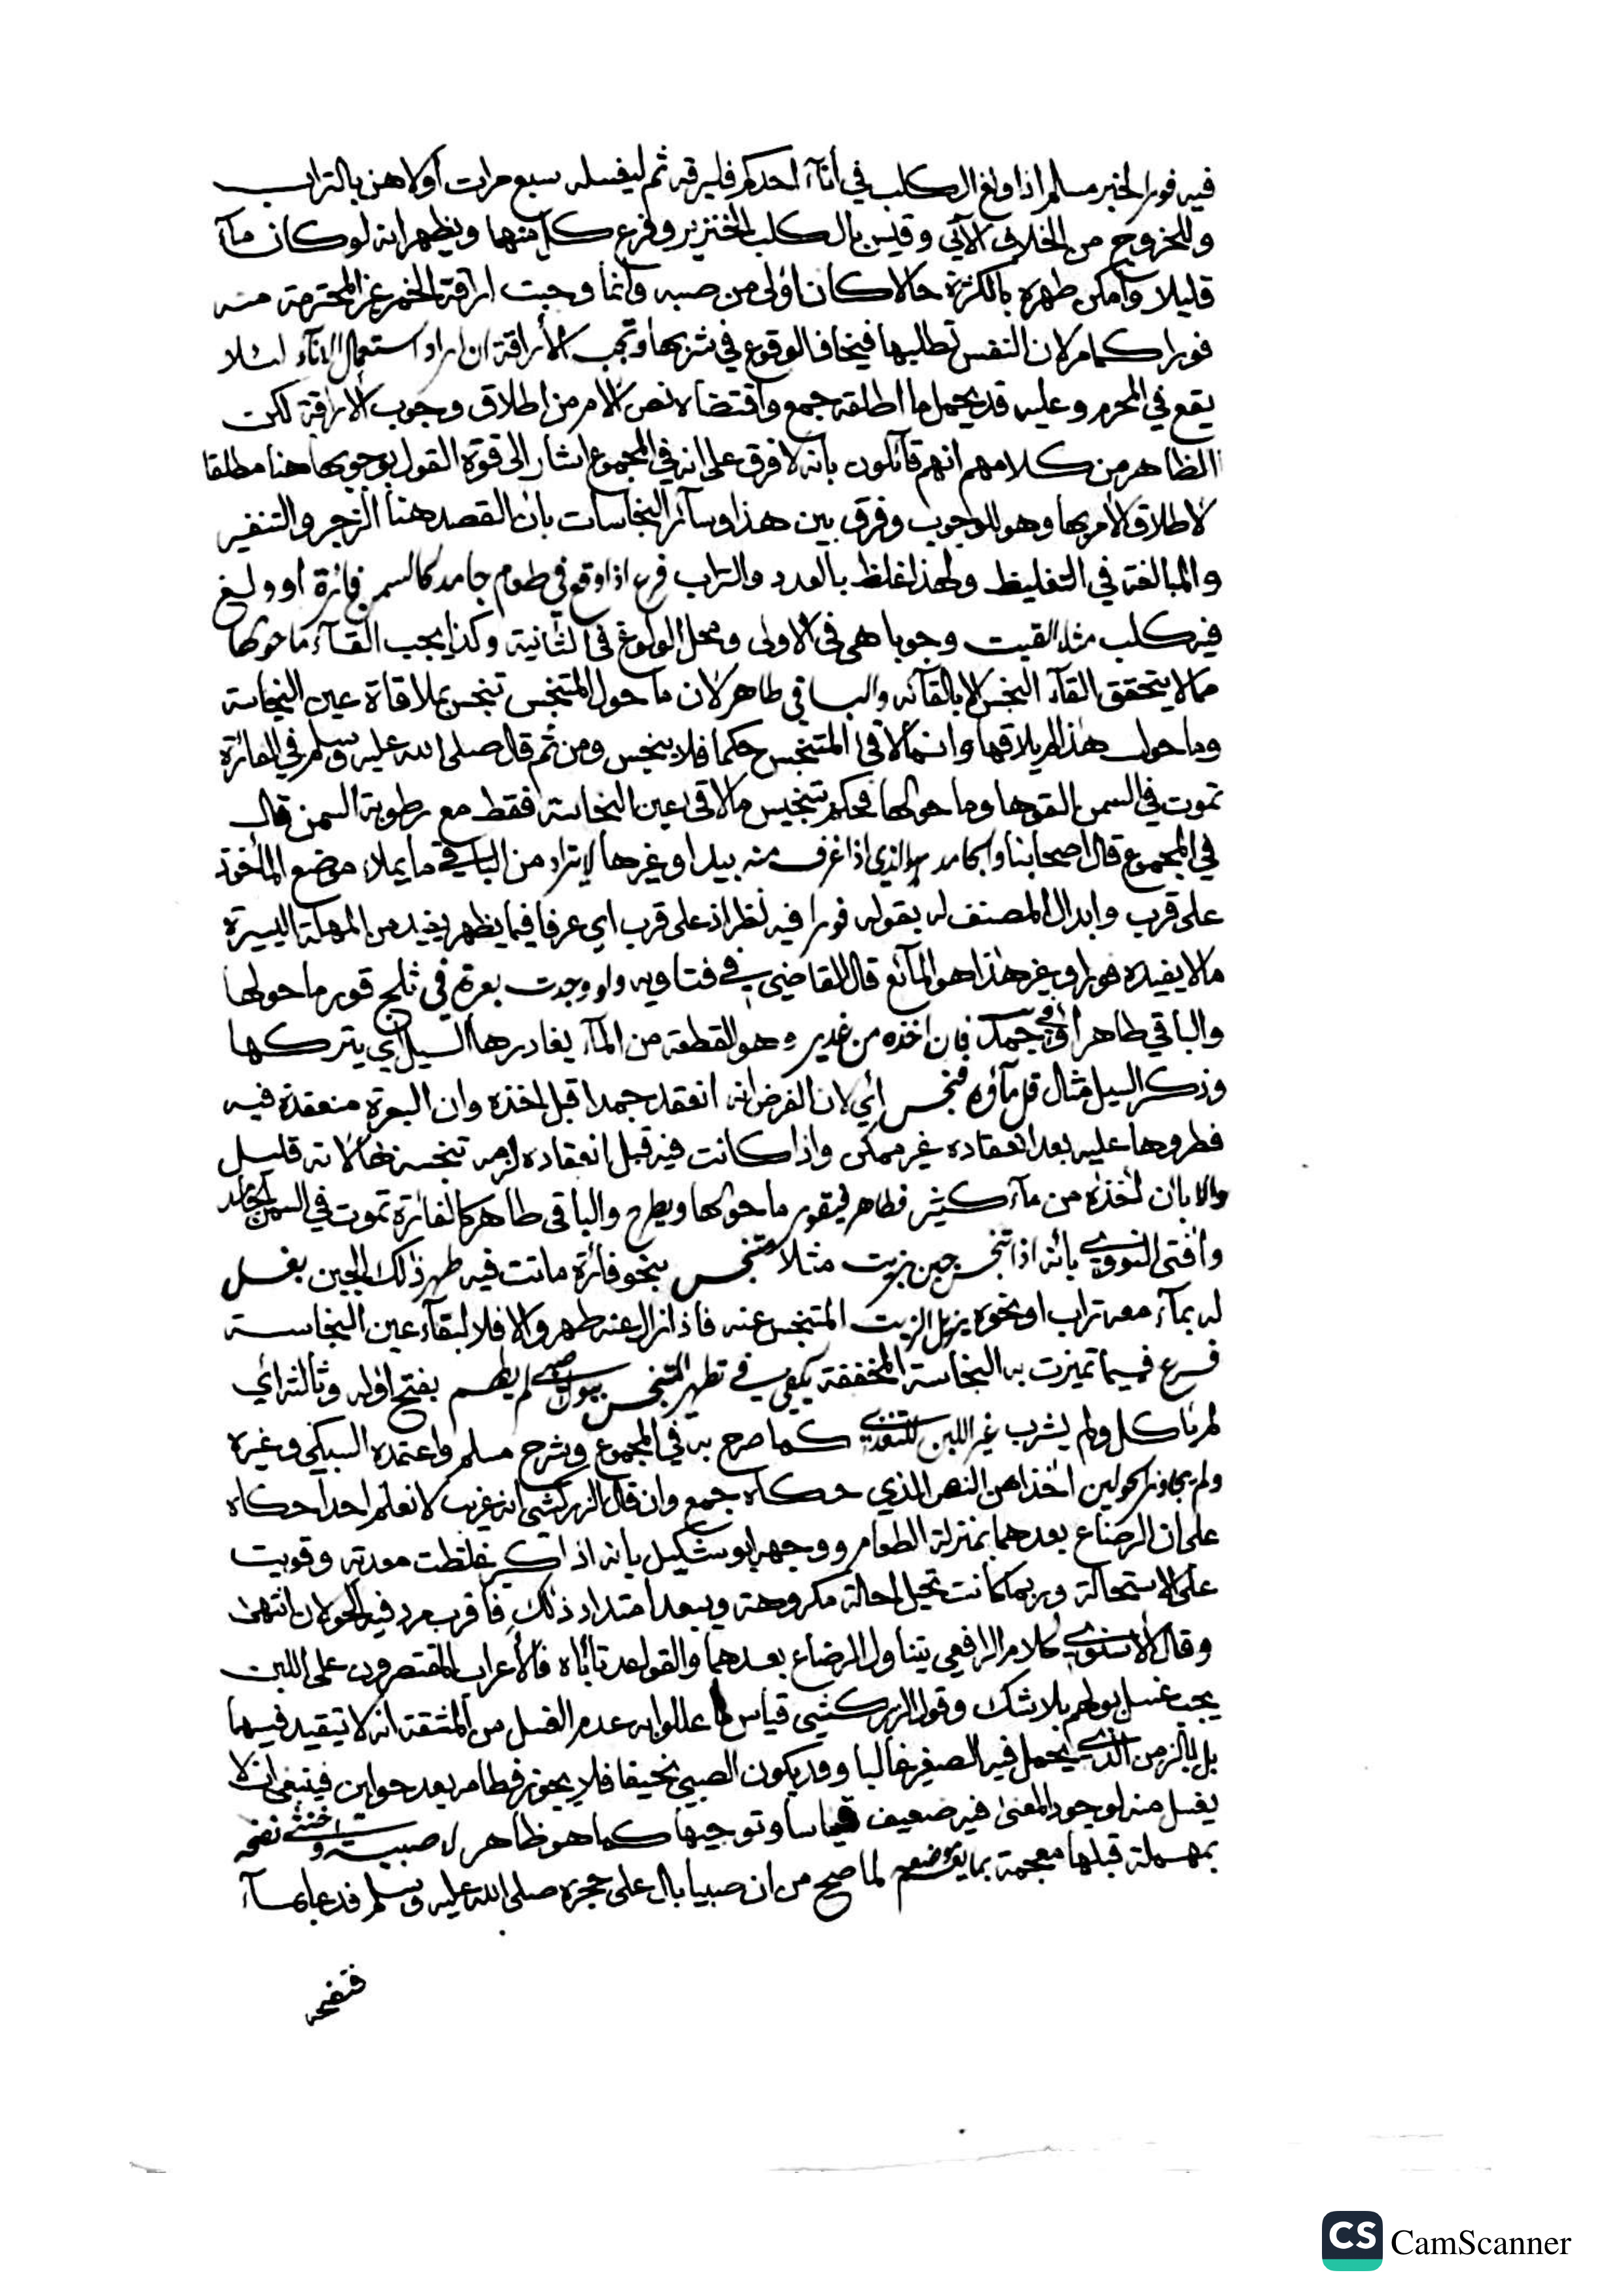 فيه فورا لخبر مسلم اذا ولغ الكلب في أناء احدكم فليرقه ثم ليغسله سبع مرات أولاهن بالتراب
وللخروج من الخلاف الآتي وقيس بالكلب الخنزير وفرع كل منهما ويظهر انه لو كان مآء
قليلا وأمكن طهره بالكثرة حالا كان اولى من صبه وانما وجبت اراقة الخمر غير المحترمة منه
فورا كما مر لان النفس تطلبها فيخاف الوقوع في شربها وتجب الأراقة ان اراد استعمال الانآء لئلا
يقع في المحرم وعليه قد يحمل ما اطلقه جمع واقتضاه نص الامر من اطلاق وجوب الاراقة لكن
الظاهر من كلامهم انهم قائلون بانه لا فرق على انه في المجموع اشار الى قوة القول بوجوبها هنا مطلقا
لاطلاق الامر بها وهو للوجوب وفرق بين هذا وسائر النجاسات بان القصد هنا الزجر والتنفير
والمبالغة في التغليظ ولهذا غلظ بالعدد والتراب فرع اذا وقع في طعام جامد كالسمن فارة او ولغ
فيه كلب مثلا القيت وجوبا هي في الاولى ومحل الولوغ في الثانية وكذا يجب القآء ما حولها
مما لا يتحقق القآء النجس الا بالقآئه والباقي طاهر لان ما حول المتنجس تنجس بملاقاة عين النجاسة
وما حول هذا لم يلاقها وانما لاقى المتنجس حكما فلا ينجس ومن ثم قال صلى الله عليه وسلم في الفارة
تموت في السمن القوها وما حولها فحكم بتنجيس ما لاقى عين النجاسة فقط مع رطوبة السمن قال
في المجموع قال اصحابنا والجامد هو الذي اذا غرف منه بيد او غيرها لا يتراد من الباقي ما يملأ موضع المأخوذ
على قرب وابدال المصنف له بقوله فورا فيه نظر اذ على قرب اي عرفا فيما يظهر يفيد من المهلة اليسيرة
ما لا يفيده فورا وغير هذا هو المآئع قال القاضي في فتاويه ولو وجدت بعرة في ثلج قور ما حولها
والباقي طاهر او في جمد فان اخذه من غدير وهو القطعة من المآء يغادرها السيل أي يتركها
وذكر السيل مثال قل مآؤه فنجس أي لان الفرض انه انعقد جمدا قبل اخذه وان البعرة منعقدة فيه
فطروها عليه بعد انعقاده غير ممكن واذا كانت فيه قبل انعقاده لزم تنجسه بها لانه قليل
والا بان أخذه من مآء كثير فطاهر فيقور ما حولها ويطرح والباقي طاهر كالفارة تموت في السمن الجامد
وافتى النووي بأنه اذا تنجس جبن بزيت مثلا متنجس بنحو فأرة ماتت فيه طهر ذلك الجبن بغسل
له بمآء معه تراب او نحوه يزيل الزيت المتنجس عنه فاذا زال عنه طهر والا فلا لبقآء عين النجاسة
فرع فيما تميزت به النجاسة المخففة يكفي في تطهر المتنجس ببول صبي لم يطعم بفتح اوله وثالثه أي
لم يأكل ولم يشرب غير اللبن للتغذي كما صرح به في المجموع وشرح مسلم واعتمده السبكي وغيره
ولم يجاوز الحولين اخذا من النص الذي حكاه جمع وان قال الزركشي انه غريب لا نعلم احدا حكاه
على ان الرضاع بعدهما بمنزلة الطعام ووجهه ابو شكيل بانه اذا كبر غلظت معدته وقويت
على الاستحالة وربما كانت تحيل احالة مكروهة ويبعد امتداد ذلك فاقرب مرد فيه الحولان انتهى
وقال الأسنوي كلام الرافعي يتناول الرضاع بعدهما والقواعد تأباه فالأعراب المقتصرون على اللبن
يجب غسل بولهم بلا شك وقول الزركشي قياس ما عللوا به عدم الغسل من المشقة انه لا يتقيد فيهما
بل بالزمن الذي يحمل فيه الصغير غالبا وقد يكون الصبي نحيفا فلا يجوز فطامه بعد حولين فينبغي ان لا
يغسل منه لوجود المعنى فيه ضعيف قياسا وتوجيها كما هو ظاهر لا صبية وخنثى نضحه
بمهملة قبلها معجمة بما يعم موضعه لما صح من ان صبيا بال على حجره صلى الله عليه وسلم فدعا بمآء
فنضحه
CS CamScanner